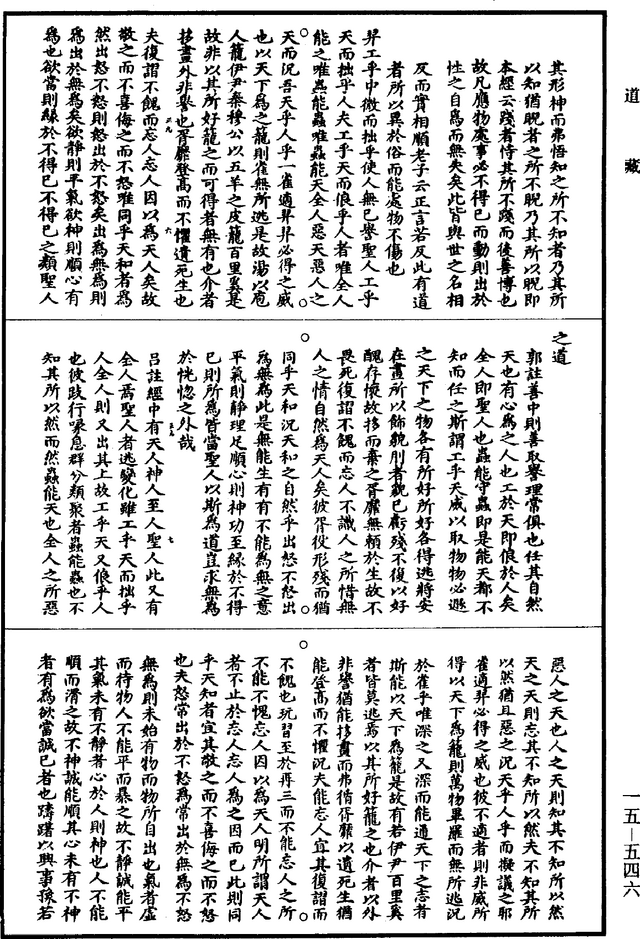 道藏
其形神而弗悟知之所不知者乃其所
以知猶睨者之所不睨乃其所以睨即
本經云踐者恃其所不踐而後善博也
故凡應物處事必不得已而動則出於
性之自為而無矣矣此皆與世之名相
反而實相順老子云正言若反此有道
者所以異於俗而能處物不傷也
羿工乎中微而拙乎使人無已譽聖人工乎
天而拙乎人夫工乎天而俍乎人者唯全人
能之唯蟲能蟲唯蟲能天全人惡天惡人之
天而況吾天乎人乎一雀適羿羿必得之威
也以天下為之籠則雀無所逃是故湯以庖
人籠伊尹秦穆公以五羊之皮籠百里奚是
故非以其所好籠之而可得者無有也介者
拸畫外非譽也胥靡登高而不懼遺死生也
夫復謵不餽而忘人忘人因以為天人矣故
敬之而不喜侮之而不怒唯同乎天和者為
然出怒不怒則怒出於不怒矣出為無為則
為出於無為矣欲靜則平氣欲神則順心有
為也欲當則緣於不得已不得已之類聖人
之道
郭註善中則善取譽理常俱也任其自然
天也有心為之人也工於天即俍於人矣
全人即聖人也蟲能守蟲即是能天都不
知而任之斯謂工乎天威以取物物必逃
之天下之物各有所好所好各得逃將安
在畫所以飾貌刖者貌已虧殘不復以好
醜存懷故拸而棄之胥靡無賴於生故不
畏死復謵不餽而忘人不識人之所惜無
人之情自然為天人矣彼胥役形殘而猶
同乎天和況天和之自然乎出怒不怒出
為無為此是無能生有有不能為無之意
平氣則靜理足順心則神功至緣於不得
已則所為皆當聖人以斯為道豈求無為
於恍惚之外哉
呂註經中有天人神人至人聖人此又有
全人焉聖人者逃變化雖工乎天而拙乎
人全人則又出其上故工乎天又俍乎人
也彼跂行喙息群分類聚者蟲能蟲也不
知其所以然而然蟲能天也全人之所惡
惡人之天也人之天則知其不知所以然
天之天則忘其不知所以然夫不知其所
以然猶且惡之況天乎人乎而擬議之耶
雀適羿必得之威也彼不適者則非威所
得以天下為籠則萬物畢羅而無所逃況
於雀乎唯深之又深而能通天下之志者
斯能以天下為籠是故有若伊尹百里奚
者皆莫逃焉以其所好籠之也介者以外
非譽猶能拸畫而弗循胥靡以遺死生猶
能登高而不懼況夫能忘人宜其復謵而
不餽也玩習至於再三而不能忘人之所
不能不愧忘人因以為天人明所謂天人
者不止於忘人忘人為之因而已此則同
乎天和者宜其敬之而不喜侮之而不怒
也夫怒常出於不怒為常出於無為不怒
無為則未始有物而物所自出也氣者虛
而待物人不能平而暴之故不靜誠能平
其氣未有不靜者心於人則神也人不能
順而滑之故不神誠能順其心未有不神
者有為欲當誠已者也躊躇以興事豫若
一五—五四六